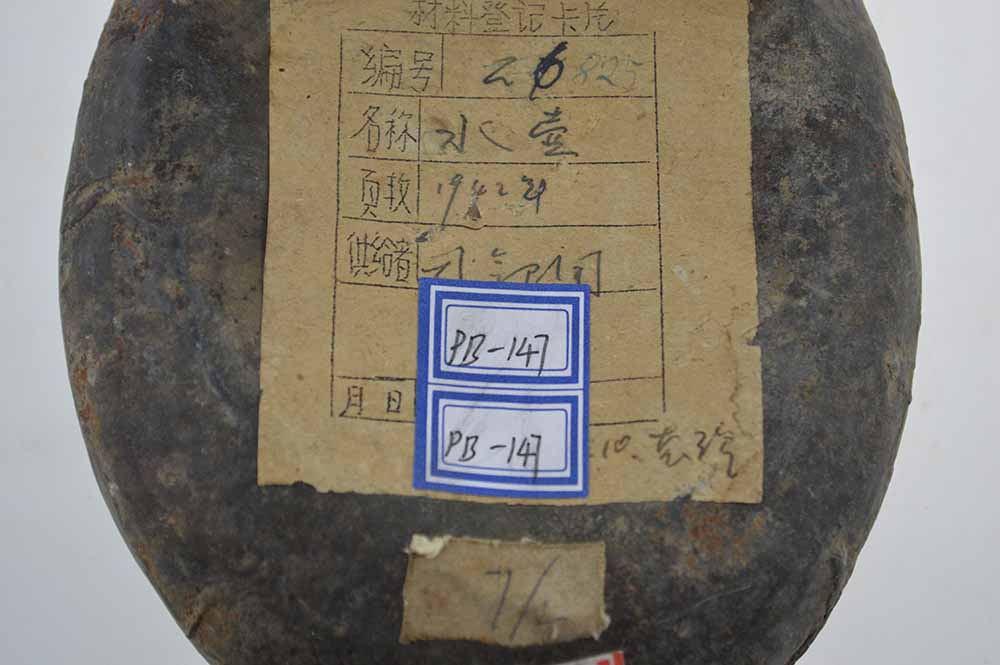 材料登记卡片
编号 26825
名称 水壶
页数 1942年
供给者
月日
PB-147
PB-147
10.
7/2